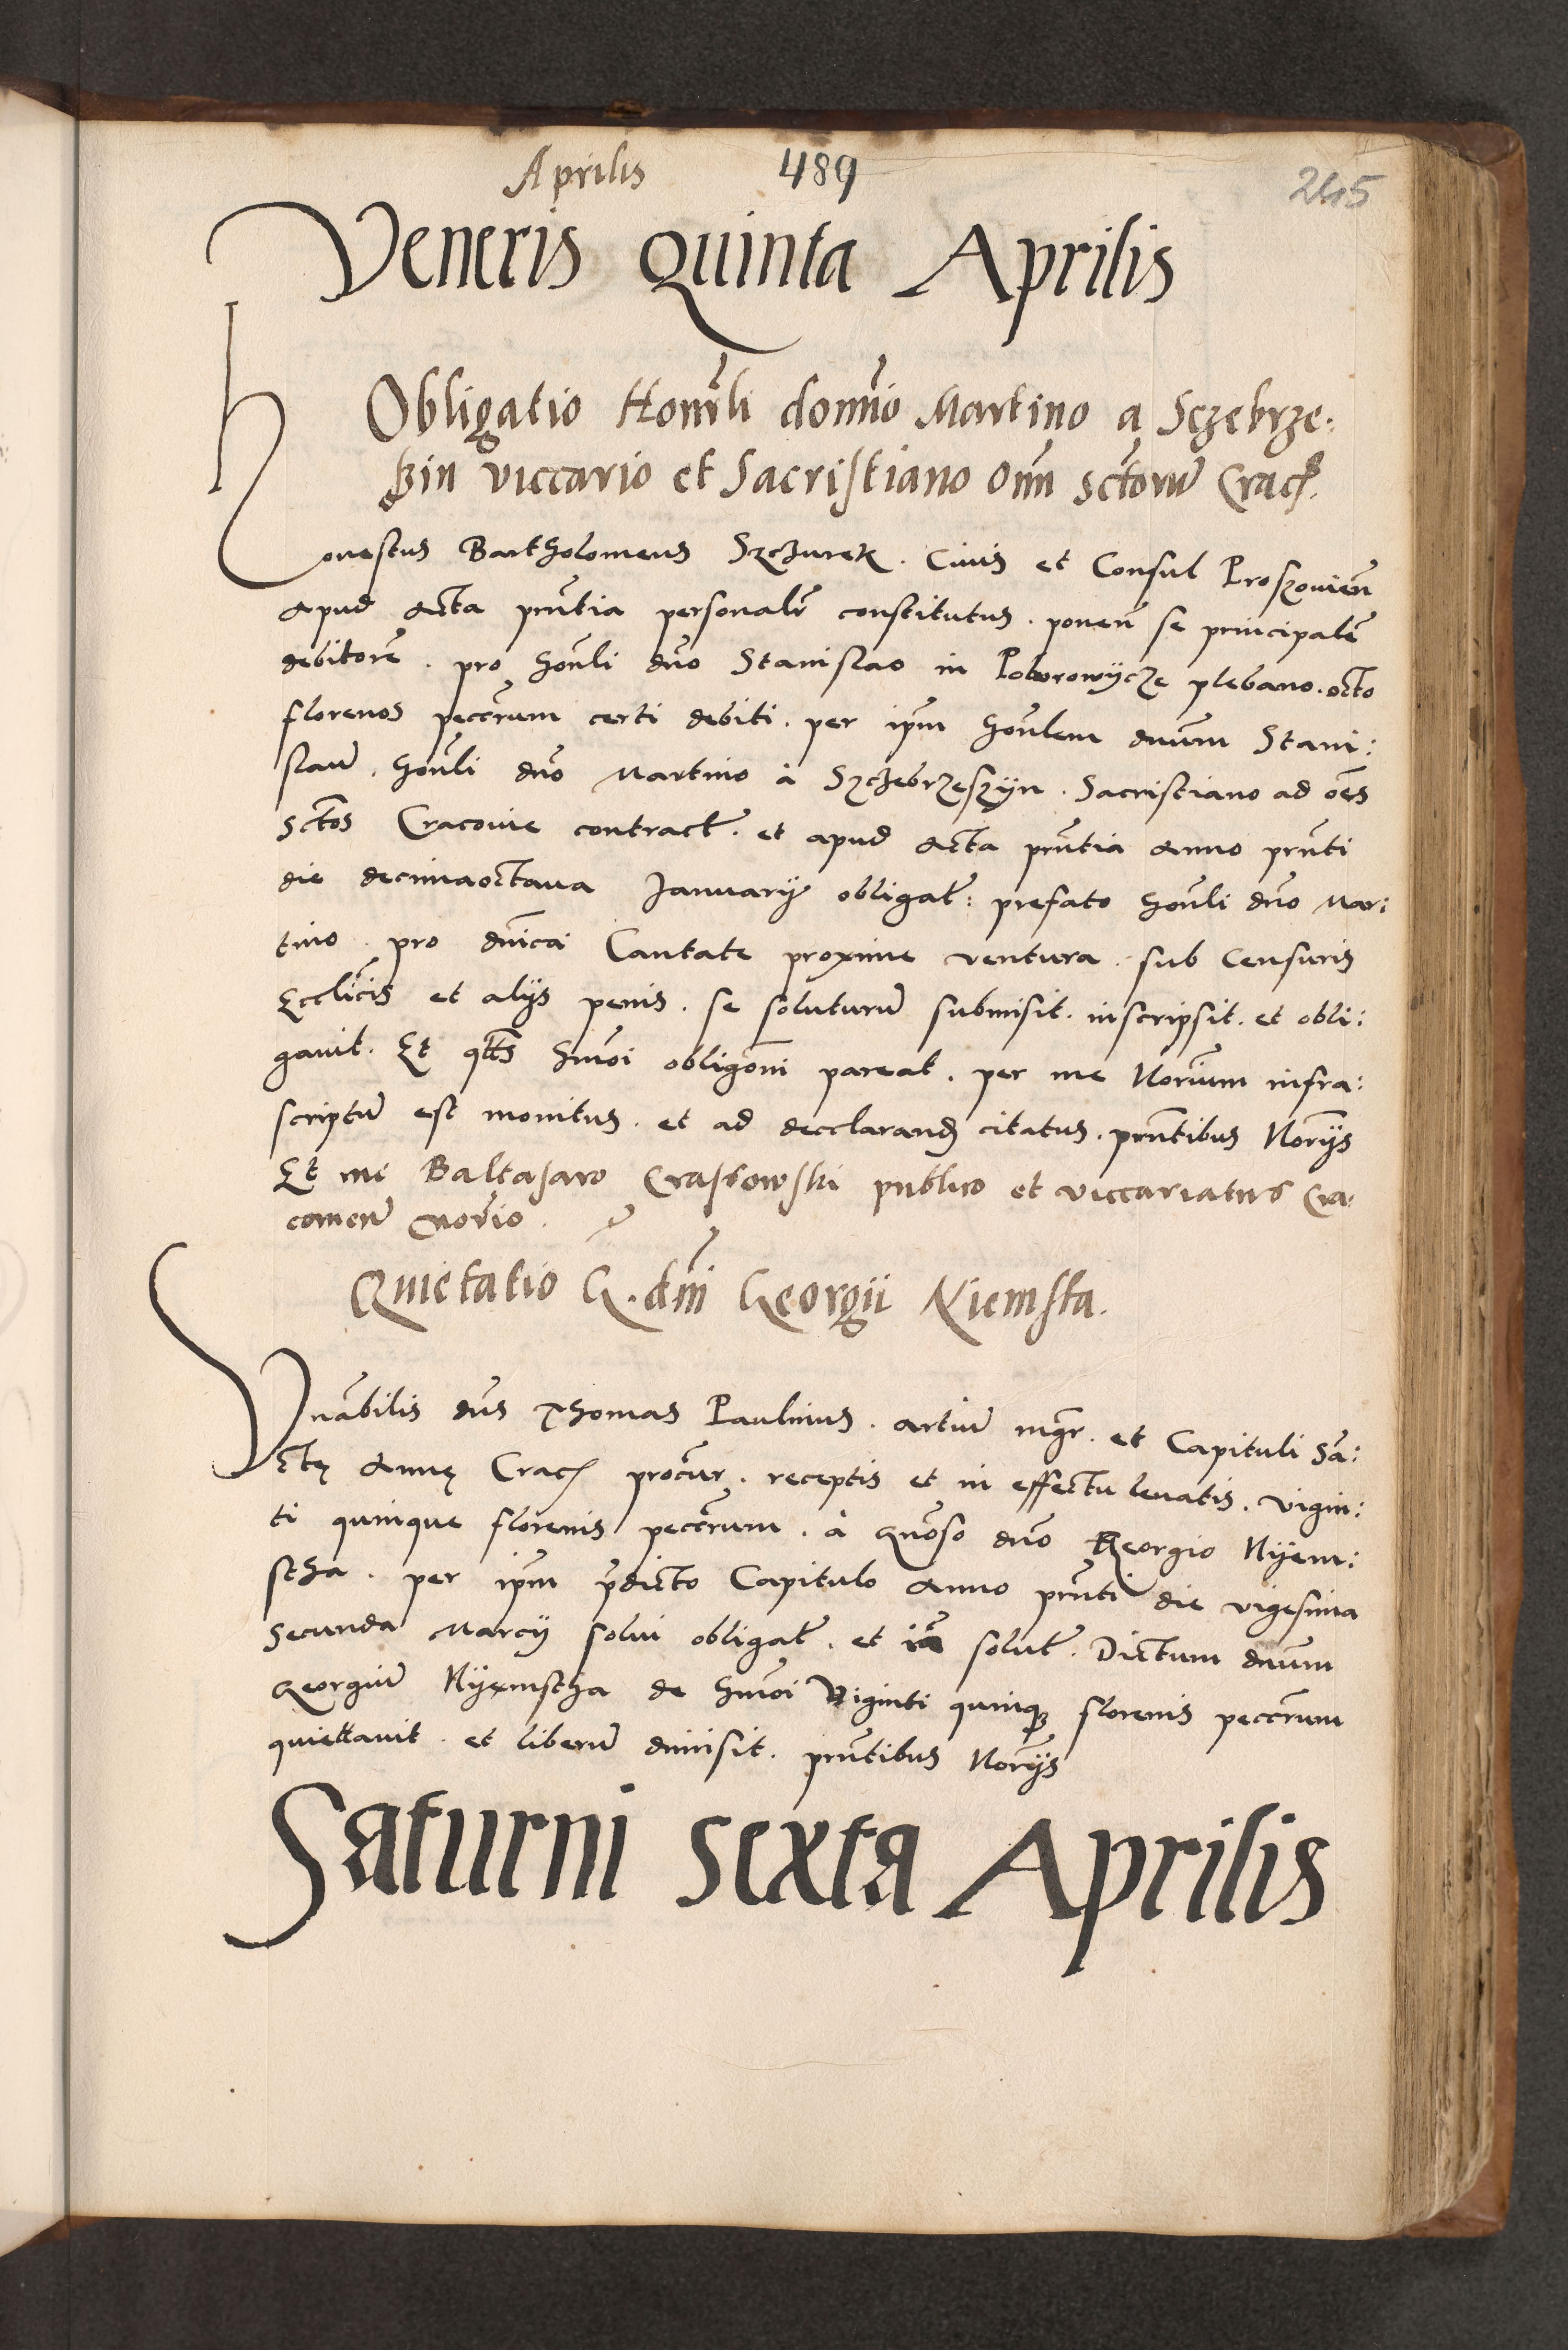 Aprilis 489 245
Veneris Quinta Aprilis
Obligatio Honrli domno Martino a Sczebrze:
szin viccario et Sacristiano Omn sctorum Crac.
Honestus Bartholomeus Szchurek. Ciuis et Consul Proszouien
apud acta prntia personalr constitutus. ponen se principale
debitore. pro honli dno Stanislao in Poborowycze plebano. octo
florenos peccrum certi debiti. per ipm honlem dnum Stani:
slau. honli dno Martino à Szchebrzeszyn. Sacristiano ad oes
sctos Cracouie contract. et apud acta prntia anno prnti
die decimaoctaua January obligat: prefato honli dno Mar:
tino. pro dnica Cantate proxime ventura. sub censuris
Ecclicis et alys penis. se soluturu submisit. inscripsit. et obli:
gauit. Et qtts hmoi obligoni pareat. per me Norium infra:
scriptu est monitus. et ad decclarand citatus. prntibus Norys
Et me Baltasaro Crassowski publico et viccariatus Cra:
couien Norio.
Quietatio G. dni Georgii Niemsta.
Vnabilis dns Thomas Paulinus. artiu mgr. et Capituli Sa:
ctę Annę Crac procur. receptis et in effectu leuatis. vigin:
ti quinque florenis peccrum. à Gnoso dno Georgio Nyem:
stha. per ipm pdicto Capitulo anno prnti die vigesima
secunda Marcy solui obligat. et ia solut. Dictum dnum
Georgiu Nyemstha de hmoi Viginti quinq florenis peccrum
quiettauit. et liberu dimisit. prntibus Norys
Saturni sexta Aprilis